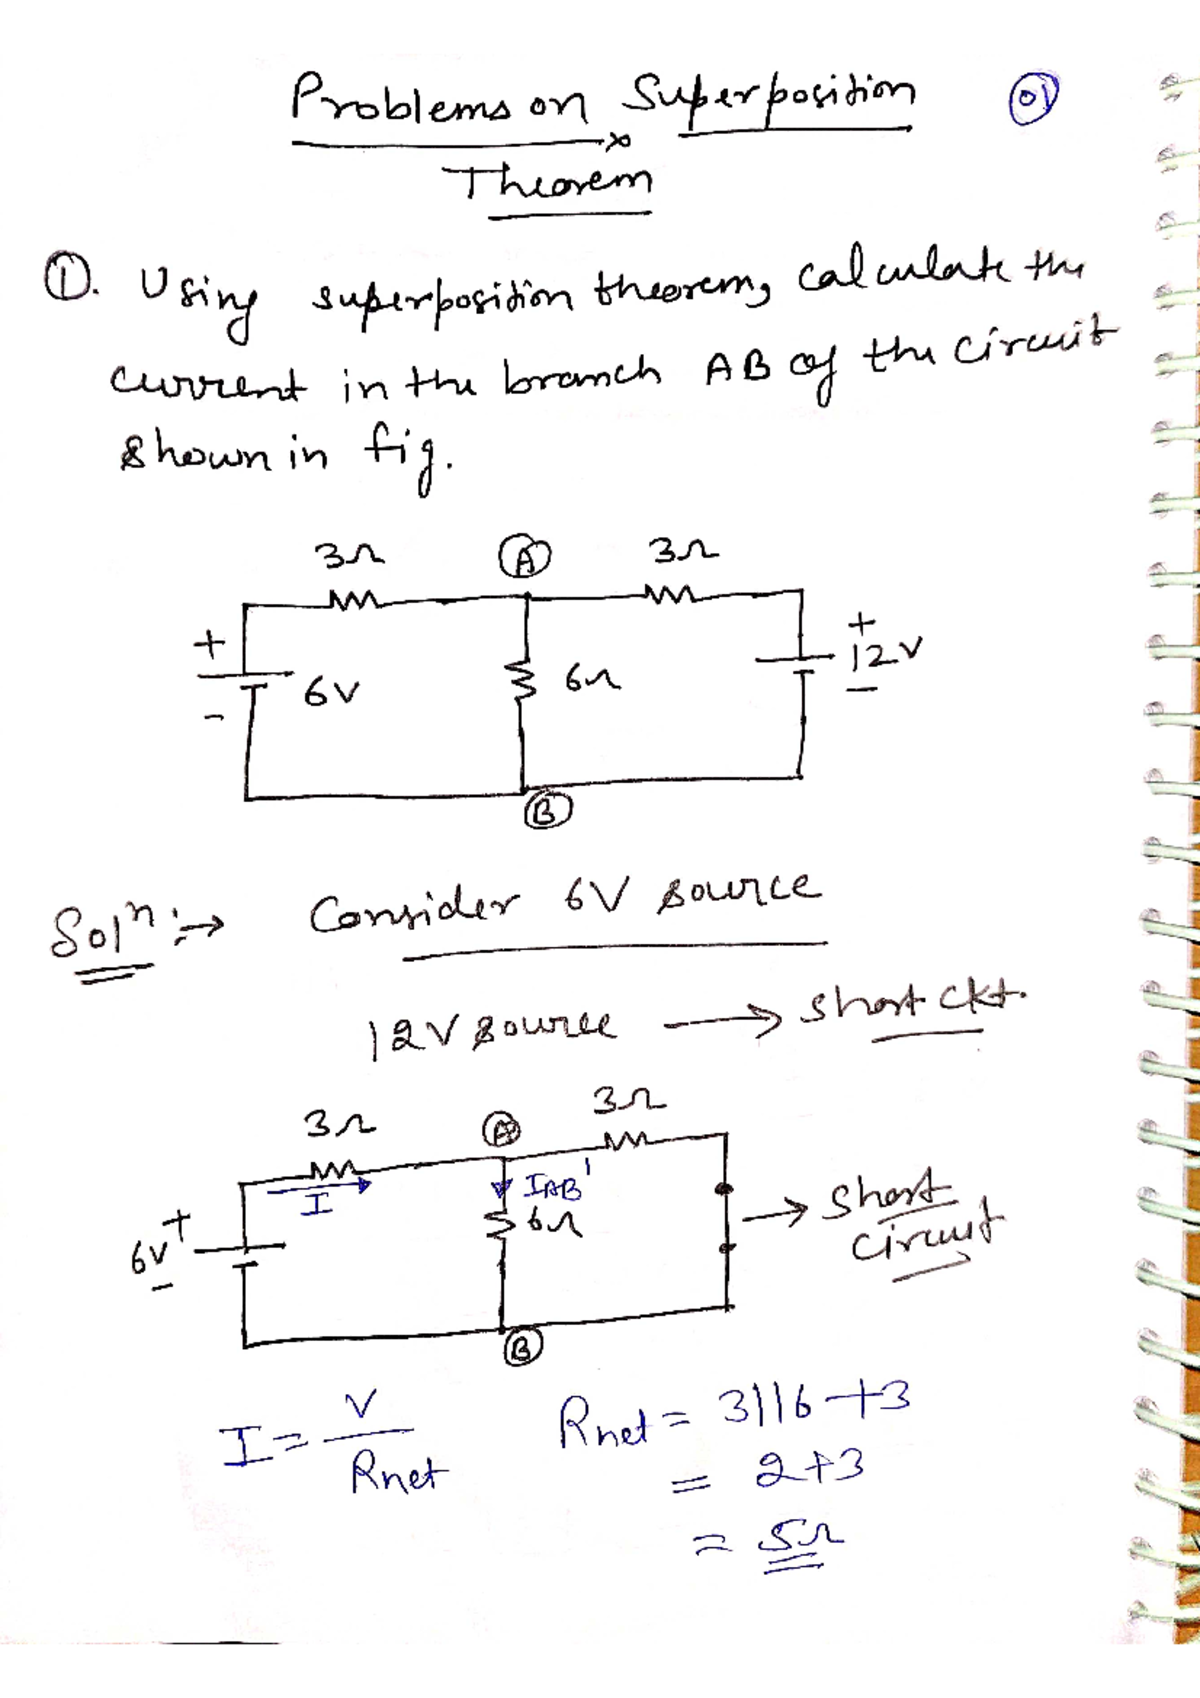 Problems on Superposition
01
Theorem
①. Using superposition theorem, calculate the
current in the branch AB of the circuit
shown in fig.
3Ω A 3Ω
+ 6V -
6Ω
+ 12V -
B
Solⁿ :→ Consider 6V source
12V source → short ckt.
3Ω A 3Ω
I
IAB'
6Ω
6V + -
→ Short
circuit
B
I = V / Rnet
Rnet = 3||6+3
= 2+3
= 5Ω